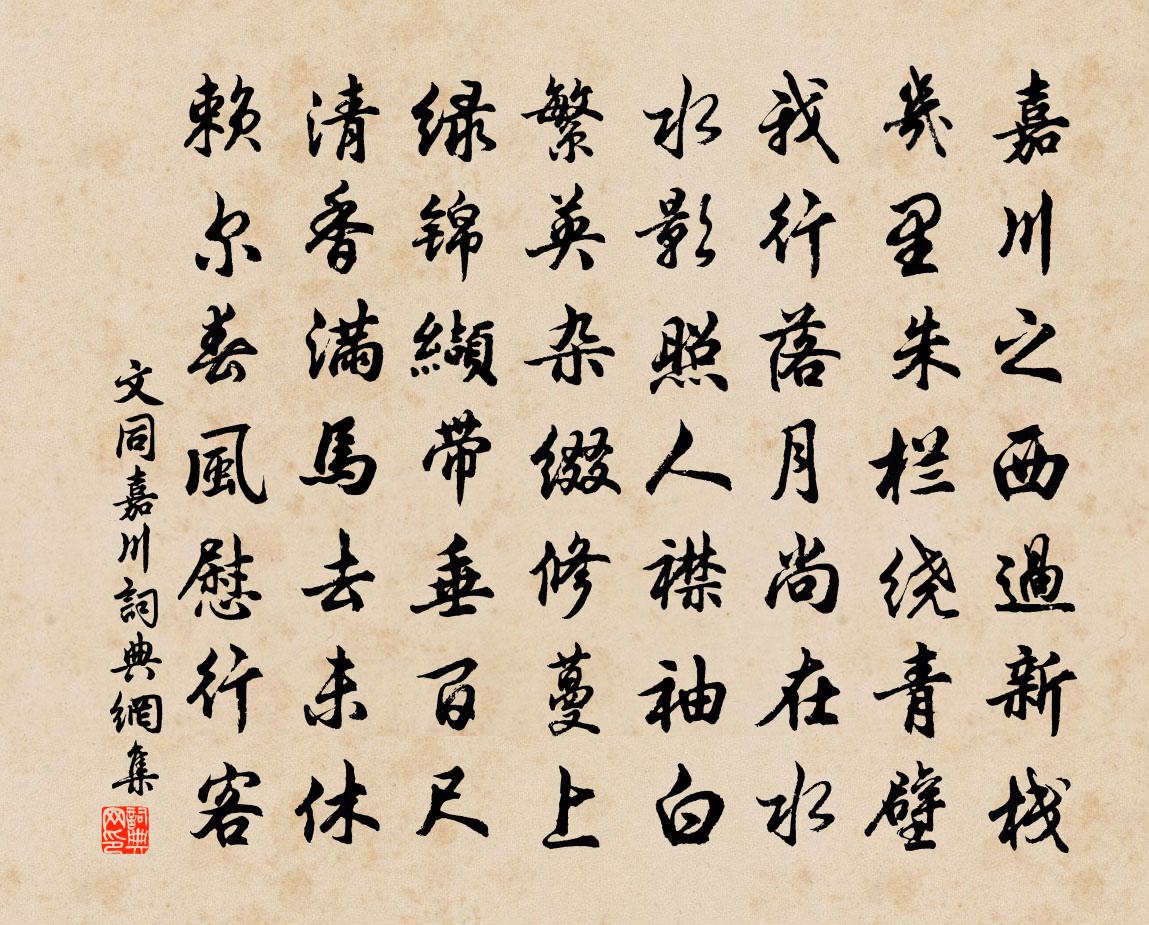 嘉川之西過新栈
幾里朱栏绕青壁
我行落月尚在水
水影照人襟袖白
繁英杂缀修蔓上
绿锦纈带垂百尺
清香满馬去未休
赖尔春風慰行客
文同嘉川詞典網集
詞典網印